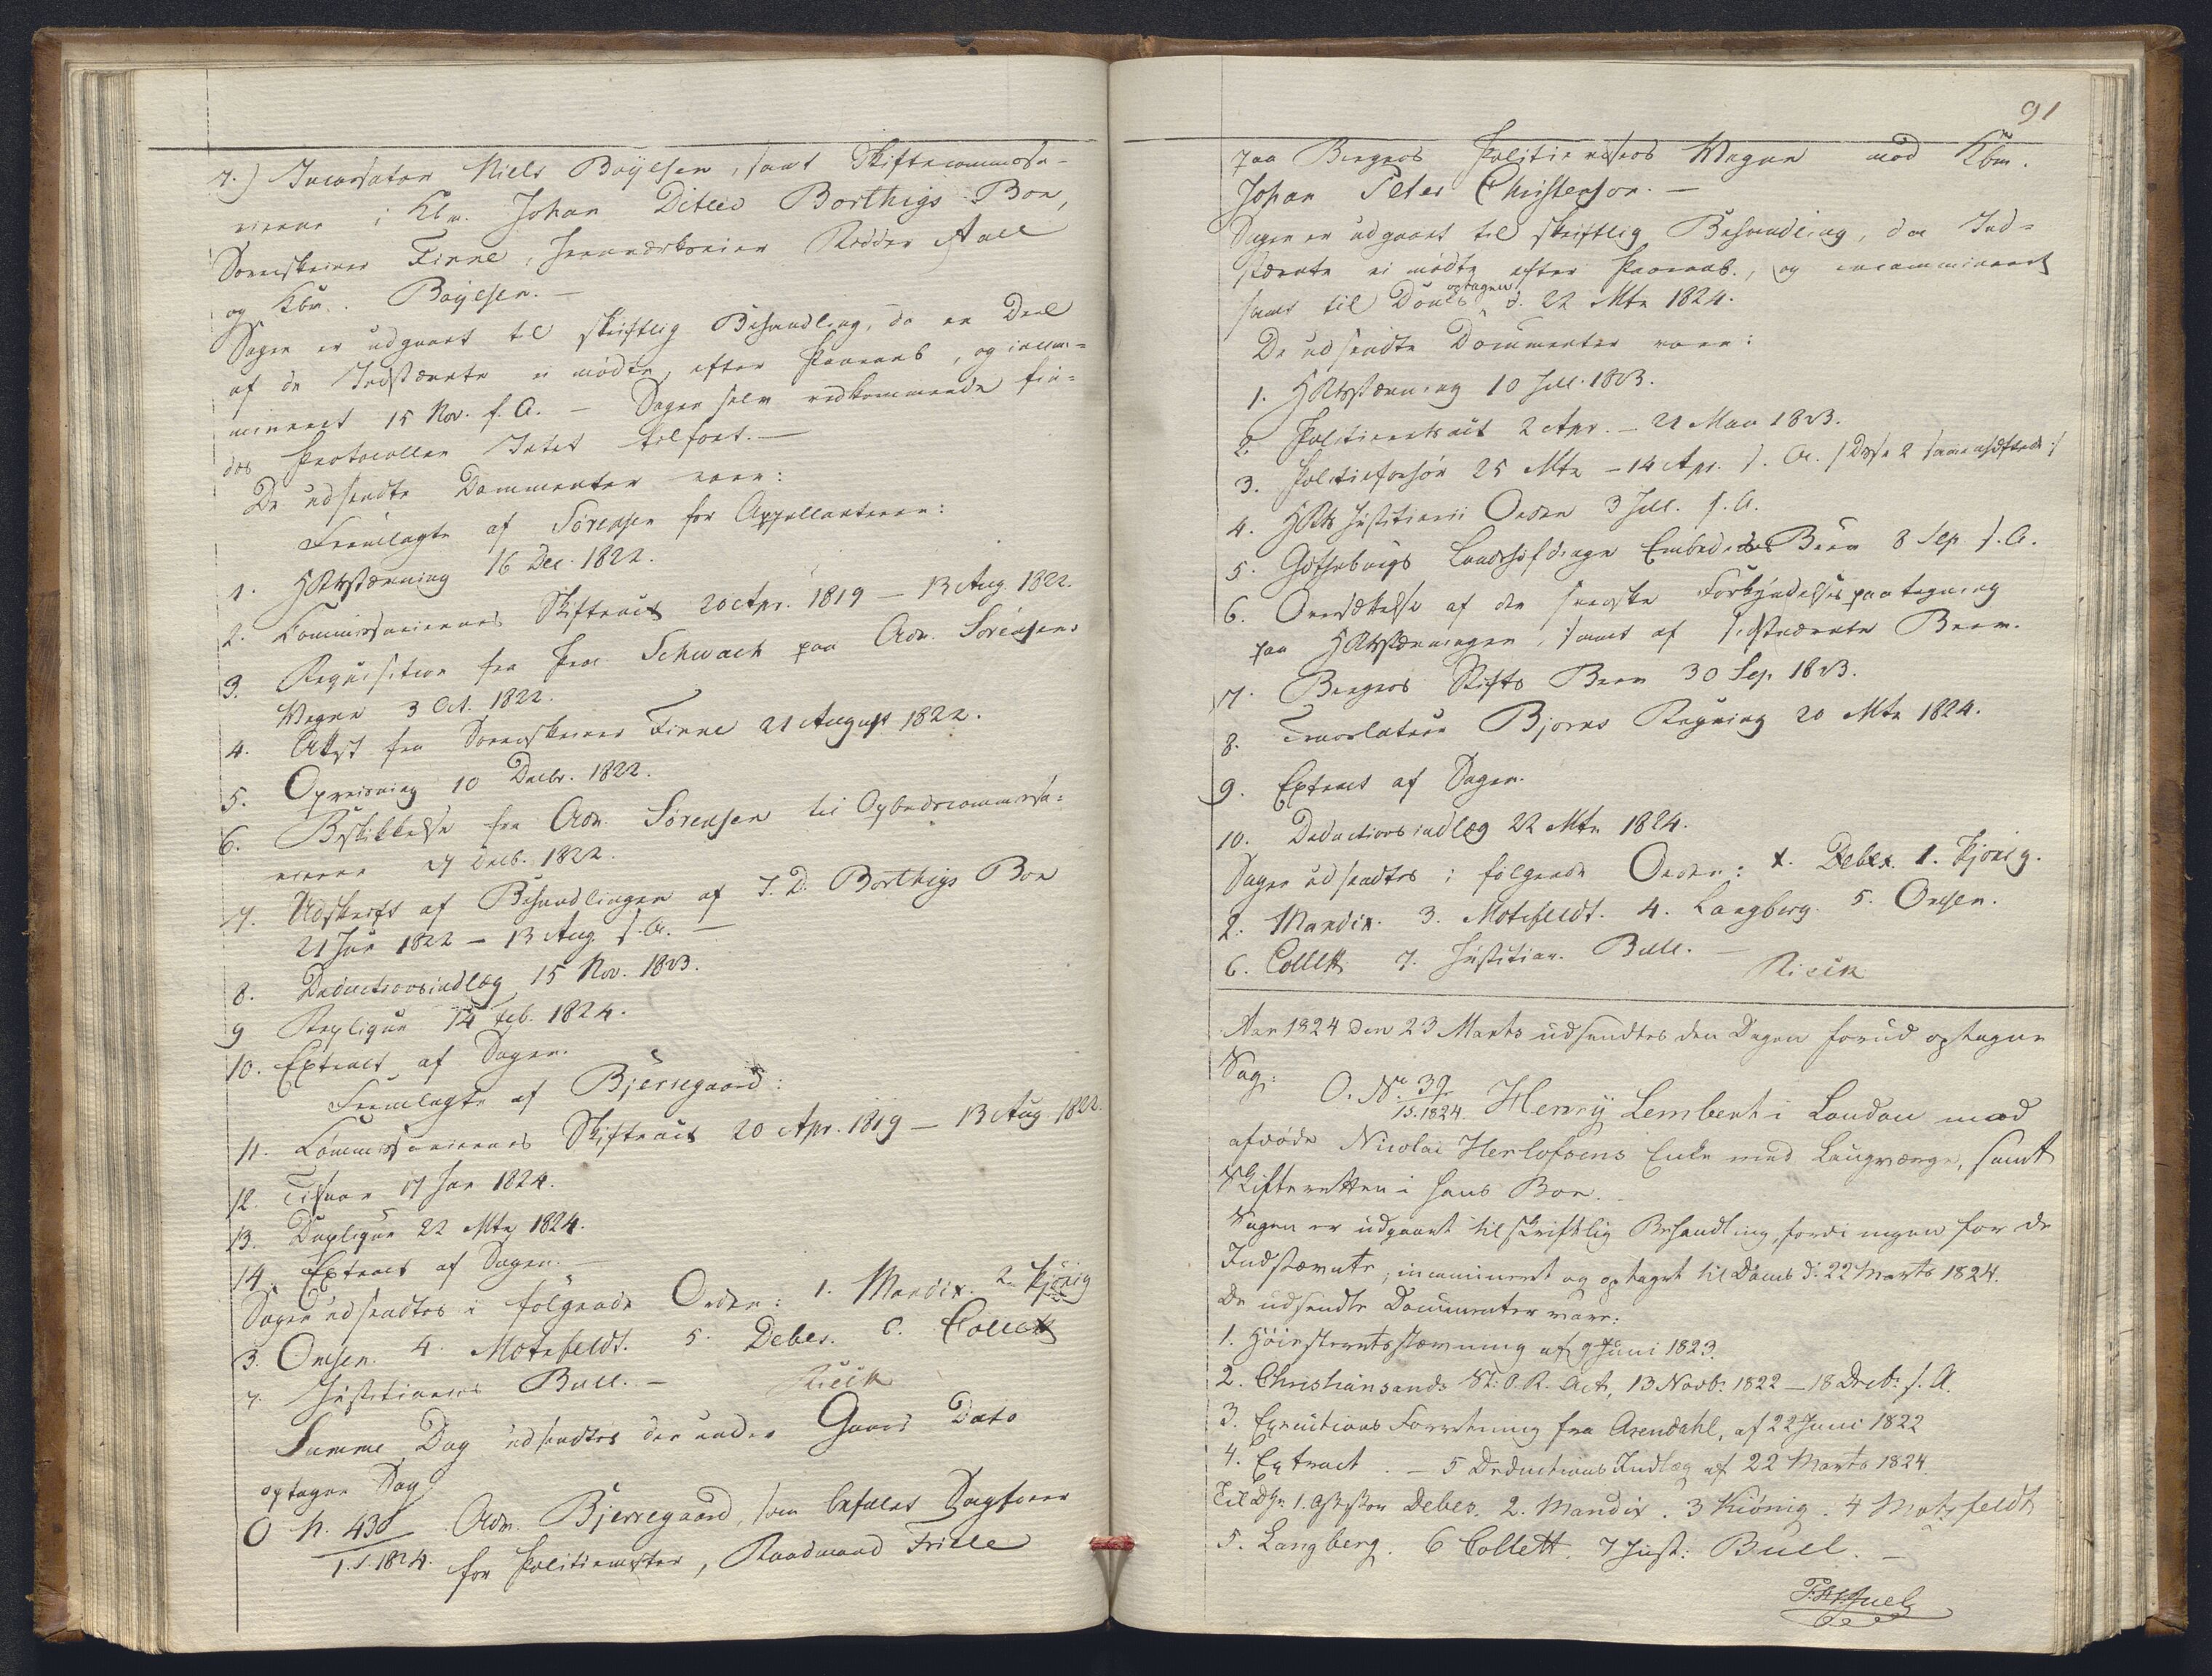 7.) Incarsator Niels Boÿesen, samt Skiftecommissa-
rierne i Kbm. Johan Ditlev Borthigs Boe,
Sorenskriver Finne, Jernværkseier Ridder Aall
og Kbm. Boÿesen. —
Sagen er udgaaet til skriftlig Behandling, da en Deel
af de Indstævnte ei mødte, efter Paaraab, og incam-
mineret 15 Nov. f. A. — Sagen selv vedkommende fin-
des Protocollen Intet tilført. —
De udsendte Documenter vare:
Fremlagte af Sørensen for Appellanterne:
1. HRtsstævning 16 Dec. 1822.
2. Commissariernes Skifteact 20 Apr. 1819 — 13 Aug. 1822.
3. Requisition fra Proc. Schwach paa Adv. Sørensens
Vegne 3 Oct. 1822.
4. Attest fra Sorenskriver Finne 21 August 1822.
5. Opreisning 10 Decbr. 1822.
6. Beskikkelse fra Adv. Sørensen til Opbudscommissa-
rierne 27 Decb. 1822.
7. Udskrift af Behandlingen af J. D. Borthigs Boe
21 Jun 1822 — 13 Aug. s. A. —
8. Deductionsindlæg 15 Nov. 1823.
9 Replique 14 Feb. 1824.
10. Extract af Sagen.
Fremlagte af Bjerregaard:
11. Commissariernes Skifteact 20 Apr. 1819 — 13 Aug. 1822.
12. Tilsvar 17 Jan 1824.
13. Duplique 22 Mts 1824.
14. Extract af Sagen. —
Sagen udsendtes i følgende Orden: 1. Mandix. 2. Kjönig
3. Omsen. 4. Motzfeldt. 5. Debes. 6. Collett
7. Justitiarius Bull. —
Samme Dag udsendtes den under Gaars Dato
optagne Sag:
O N. 438 Adv. Bjerregaard, som befalet Sagfører
1. S. 1824. for Politiemester, Raadmand Frille
91
paa Bergens Politievæsens Vegne mod Kbm.
Johan Peter Christenson. —
Sagen er udgaaet til skriftlig Behandling, da Ind-
stævnte ei mødte efter Paaraab, og incammineret
samt til Doms optagen d. 22 Mts 1824.
De udsendte Documenter vare:
1. HRtsstævning 10 Jull. 1823.
2. Politieretsact 2 Apr. — 21 Mai 1823.
3. Politieforhör 25 Mts — 14 Apr. s. A. /: Disse 2 sammenhæftede :/
4. HRts Justitiarii Orden 3 Jull. s. A.
5. Gøtheborgs Landshøfdinge Embedes Brev 8 Sep s. A.
6. Oversættelse af den svenske Forkyndelsespaategning
paa HRtsstævningen, samt af sidstnævnte Brev.
7. Bergens Stifts Brev 30 Sep. 1823.
8. Translateur Bjorns Regning 20 Mts 1824.
9. Extract af Sagen.
10. Deductionsindlæg 22 Mts 1824.
Sagen udsendtes i følgende Orden: Debes. 1. Kjönig.
2. Mandix. 3. Motzfeldt. 4. Langberg. 5. Omsen.
6. Collett 7. Justitiar. Bull. —
Aar 1824 den 23 Marts udsendtes den Dagen forud optagne
Sag:
O. No. 39 Henrÿ Lembert i London mod
1 S. 1824.
afdøde Nicolai Herlofsens Enke med Laugværge, samt
Skifteretten i hans Boe.
Sagen er udgaaet til skriftlig Behandling, fordi ingen for de
Indstævnte, incamineret og optaget til Doms d: 22 Marts 1824.
De udsendte Documenter vare:
1. Høiesteretsstævning af 9 Juni 1823.
2. Christiansands St: O. R. Act, 13 Novb: 1822 — 18 Decb: s. A.
3. Executions Forretning fra Arendahl, af 22 Juni 1822
4. Extract. — 5 Deductions Indlæg af 22 Marts 1824
Til 1. Assessor Debes. 2. Mandix. 3 Kiönig. 4 Motzfeldt
5. Langberg. 6 Collett. 7 Just: Bull. —